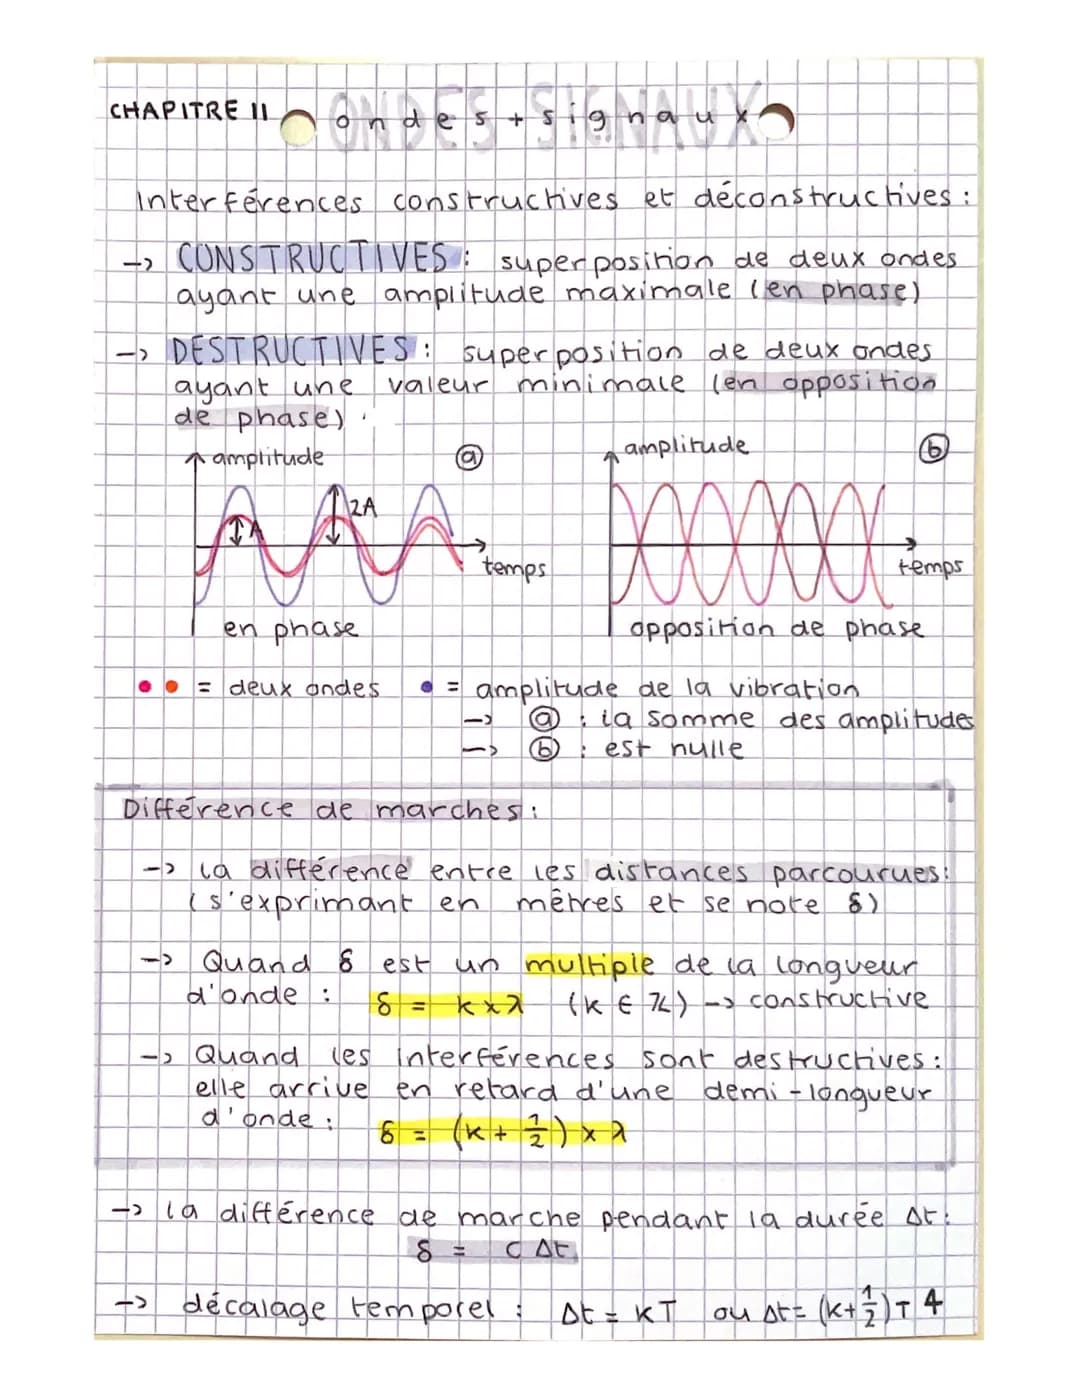 CHAPITRE II ONDES + SIGNAUX
ondes + signaux
Interférences constructives et déconstructives :
-> CONSTRUCTIVES : superposition de deux ondes
ayant une amplitude maximale (en phase)
-> DESTRUCTIVES : superposition de deux ondes
ayant une valeur minimale (en opposition
de phase)
amplitude ⓐ
A
2A
temps
en phase
amplitude ⓑ
temps
opposition de phase
= deux ondes
= amplitude de la vibration
-> ⓐ : la somme des amplitudes
-> ⓑ : est nulle
Différence de marches :
-> la différence entre les distances parcourues :
(s'exprimant en mètres et se note δ)
-> Quand δ est un multiple de la longueur
d'onde : δ = k x λ (k ∈ ℤ) -> constructive
-> Quand les interférences sont destructives :
elle arrive en retard d'une demi-longueur
d'onde : δ = (k + 1/2) x λ
-> la différence de marche pendant la durée Δt :
δ = c Δt
-> décalage temporel : Δt = kT ou Δt = (k+1/2)T 4